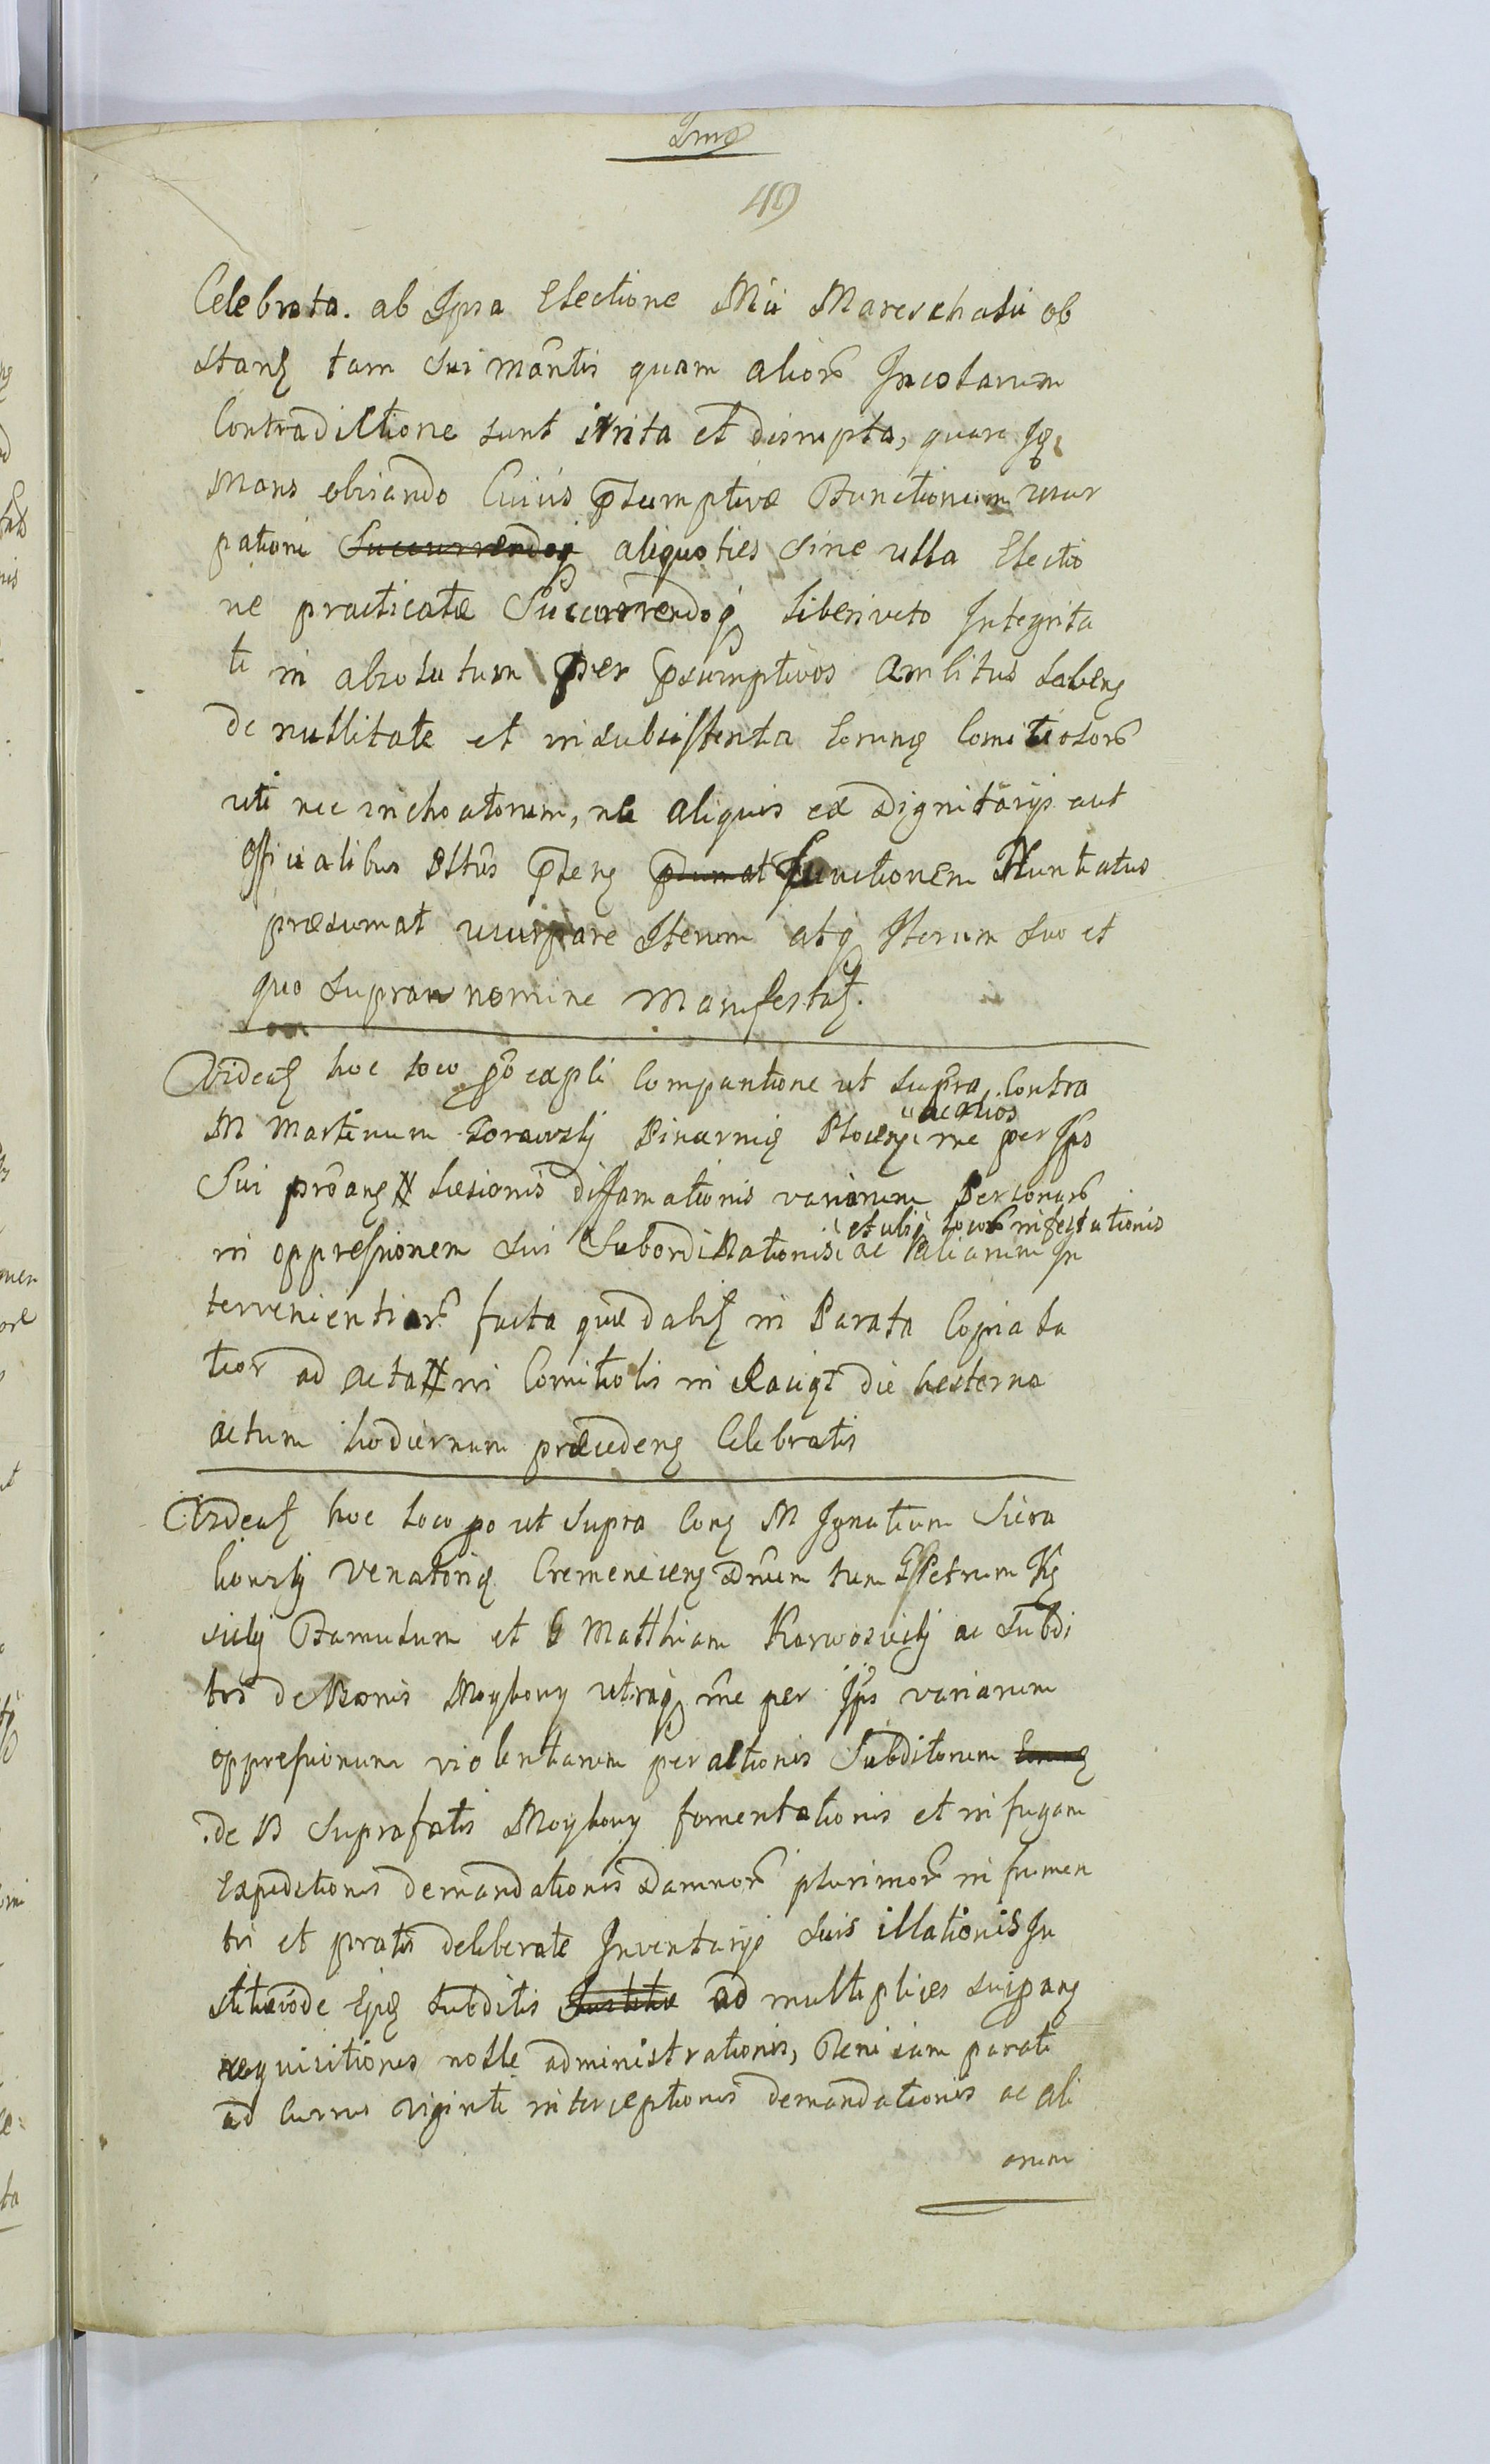 49
Celebrata. ab Ipsa Electione Mci Mareschalii ob
stan tam sui mantis quam alior Incolarum
Contradictione sunt irrita et disrupta, quare Is
Mans obviando Cuius psumptivæ Functionum usur
pationi Succurrendoq aliquoties sine ulla Electio
ne practicatæ Succurrendoq liberiveto Integrita
ti in absolutum per psumptivos Ambitus labens
de nullitate et insubsistentia Eorunq Comitiolor
uti nec inchoatorum, ne aliquis ex Dignitarijs aut
Officialibus pteng psumat functionem Nuntiatus
præsumat usurpare Iterum atq Iterum suo et
quo supra nomine Manifestat.
Videat hoc loco po expli Comparitione ut supra, Contra
M Martinum Pincernæ ac alios me per Ips
Sui prang Læsionis diffamationis variarum Personar
in oppressionem sui Subordinationis et ubiq locor infestationis ac aliarum In
tervenientiar facta quæ dabit in Parata Copia la
tior ad acta in Comitiolis in die hesterna
actum hodiernum præcedens Celebratis
Videat hoc loco po ut supra Con M Ignatium Siera
kowski Venatorem Cremenecens Dnum tum G Petrum
sicki Famulum et G Matthiam Karwosiecki ac Subdi
tos de Bonis Moykowy utraq me per Ips variarum
oppressionum violentarum peractionis Subditorum
de B Suprafatis Moykowy fomentationis et in fugam
Expeditionis demandationis Damnor plurimor in frumen
tis et pratis deliberate Inventarijs suis illationis Ju
stitiæ de Ejus subditis Justitiæ ad multiplices sui pang
requisitiones nolle administrationis, Feni iam parati
ad Currus viginti interceptionis demandationis ac ali
arum